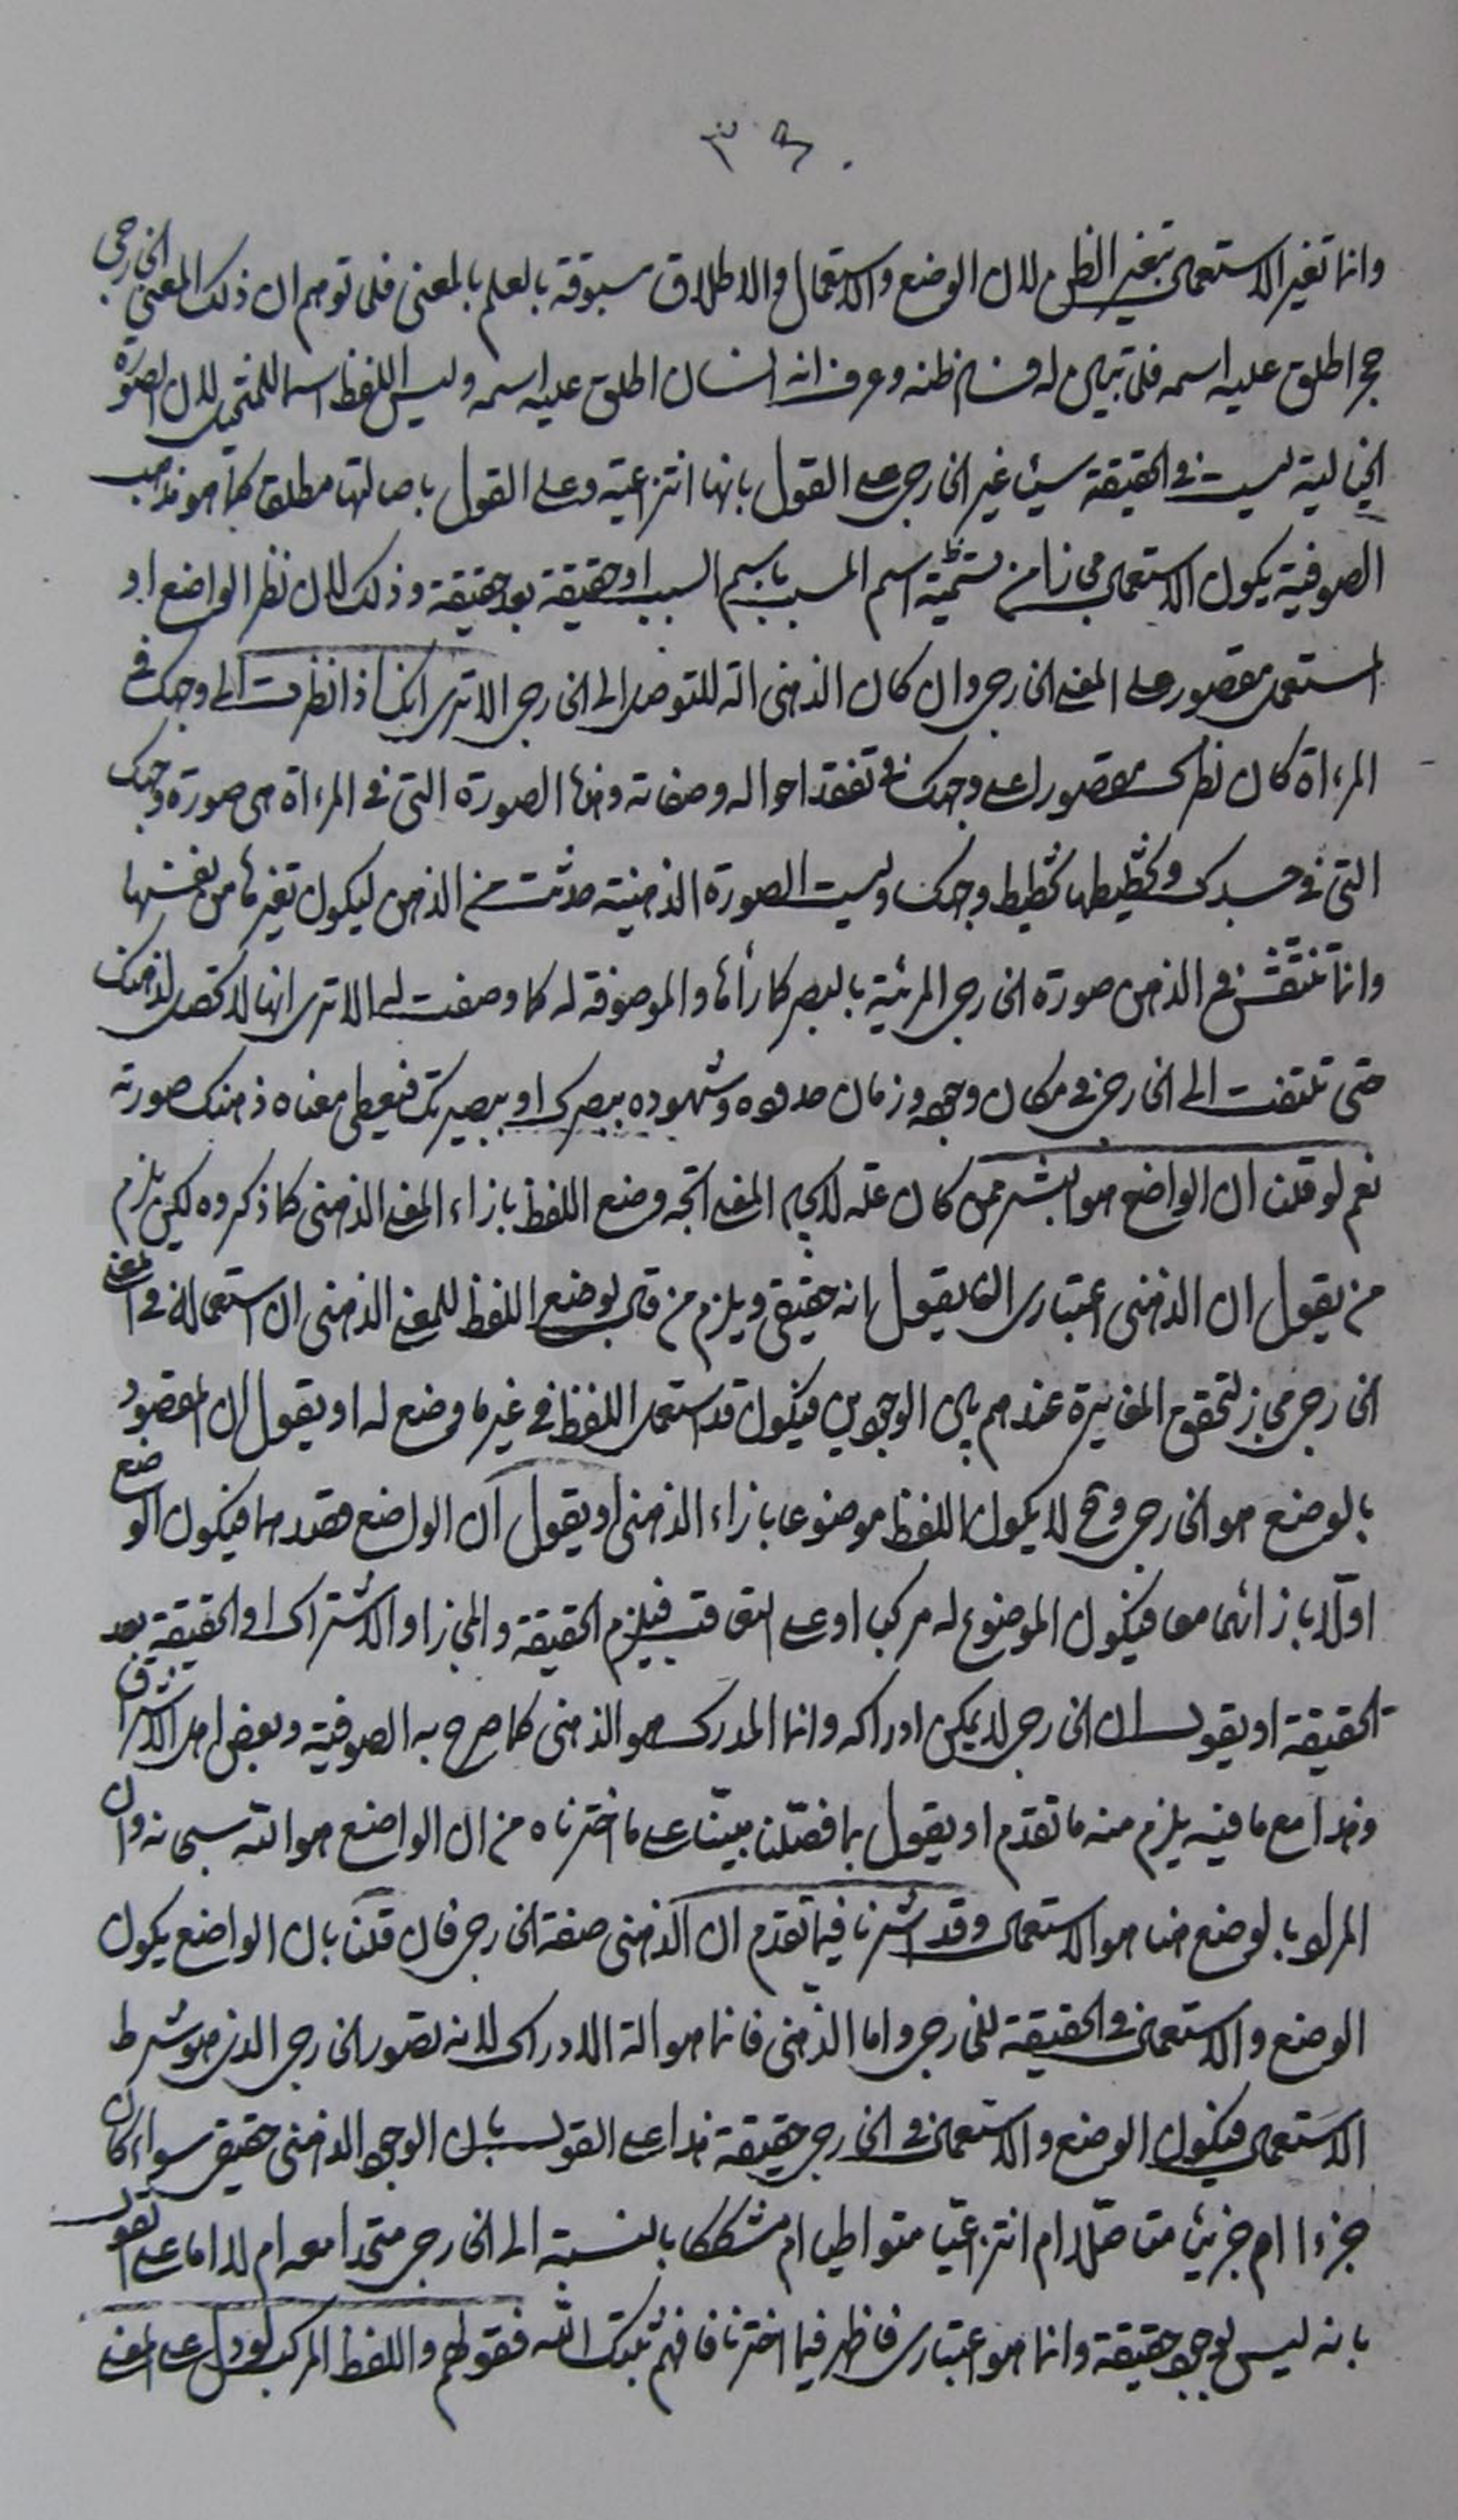 ٣٩٠
وانما تغير الاستعمال بتغير الظن لان الوضع والاستعمال والاطلاق مسبوقة بالعلم بالمعنى فلما توهم ان ذلك المعنى الخارجي
حجر اطلق عليه اسمه فلما تبين له فساد ظنه وعرف انه انسان اطلق عليه اسمه وليس اللفظ اسما للمتخيل لان الصورة
الخيالية ليست في الحقيقة شيئا غير الخارجي على القول بانها انتزاعية وعلى القول باصالتها مطلقا كما هو مذهب
الصوفية يكون الاستعمال مجازا من تسمية اسم المسبب باسم السبب او حقيقة بعد حقيقة وذلك لان نظر الواضع او
المستعمل مقصور على المعنى الخارجي وان كان الذهني الة للتوصل الى الخارجي الا ترى انك اذا نظرت الى وجهك في
المرءاة كان نظرك مقصورا على وجهك في تفقد احواله وصفاته ومنها الصورة التي في المرءاة هي صورة وجهك
التي في جسدك وتخطيطها تخطيط وجهك وليست الصورة الذهنية حدثت من الذهن ليكون تغيرها من نفسها
وانما تنتقش في الذهن صورة الخارجي المرئية بالبصر كما رأها والموصوفة له كما وصفت له الا ترى انها لا تحصل لذهنك
حتى تلتفت الى الخارجي في مكان وجوده وزمان حدوده وشهوده ببصرك او ببصيرتك فيعطى معناه ذهنك صورته
نعم لو قلنا ان الواضع هو البشر ممن كان علة لايجاد المعنى اتجه وضع اللفظ بازاء المعنى الذهني كما ذكروه لكن يلزم
من يقول ان الذهني اعتباري ان يقول انه حقيقي ويلزم من قال بوضع اللفظ للمعنى الذهني ان استعماله في المعنى
الخارجي مجاز لتحقق المغايرة عندهم بين الوجودين فيكون قد استعمل اللفظ في غير ما وضع له او يقول ان المقصود
بالوضع هو الخارجي وح لا يكون اللفظ موضوعا بازاء الذهني او يقول ان الواضع قصدهما فيكون الوضع
اولا بازائهما معا فيكون الموضوع له مركبا او على التعاقب فيلزم الحقيقة والمجاز او الاشتراك او الحقيقة بعد
الحقيقة او يقول ان الخارجي لا يمكن ادراكه وانما المدرك هو الذهني كما صرح به الصوفية وبعض اهل الاشراق
وهذا مع ما فيه يلزم منه ما تقدم او يقول بما فصلنا مبينا على ما اخترناه من ان الواضع هو الله سبحانه وان
المراد بالوضع هنا هو الاستعمال وقد اشرنا فيما تقدم ان الذهني صفة الخارجي فان قلنا بان الواضع يكون
الوضع والاستعمال في الحقيقة للخارجي واما الذهني فانما هو الة الادراك لانه تصور الخارجي الذي هو شرط
الاستعمال فيكون الوضع والاستعمال في الخارجي حقيقة هذا على القول بان الوجود الذهني حقيقي سواء كان
جزءا ام جزئيا متاصلا ام انتزاعيا متواطيا ام مشككا بالنسبة الى الخارجي متحدا معه ام لا اما على القول
بانه ليس بوجود حقيقة وانما هو اعتباري فاظهر فيما اخترنا فافهم ثبتك الله فقولهم واللفظ المركب لو دل على المعنى